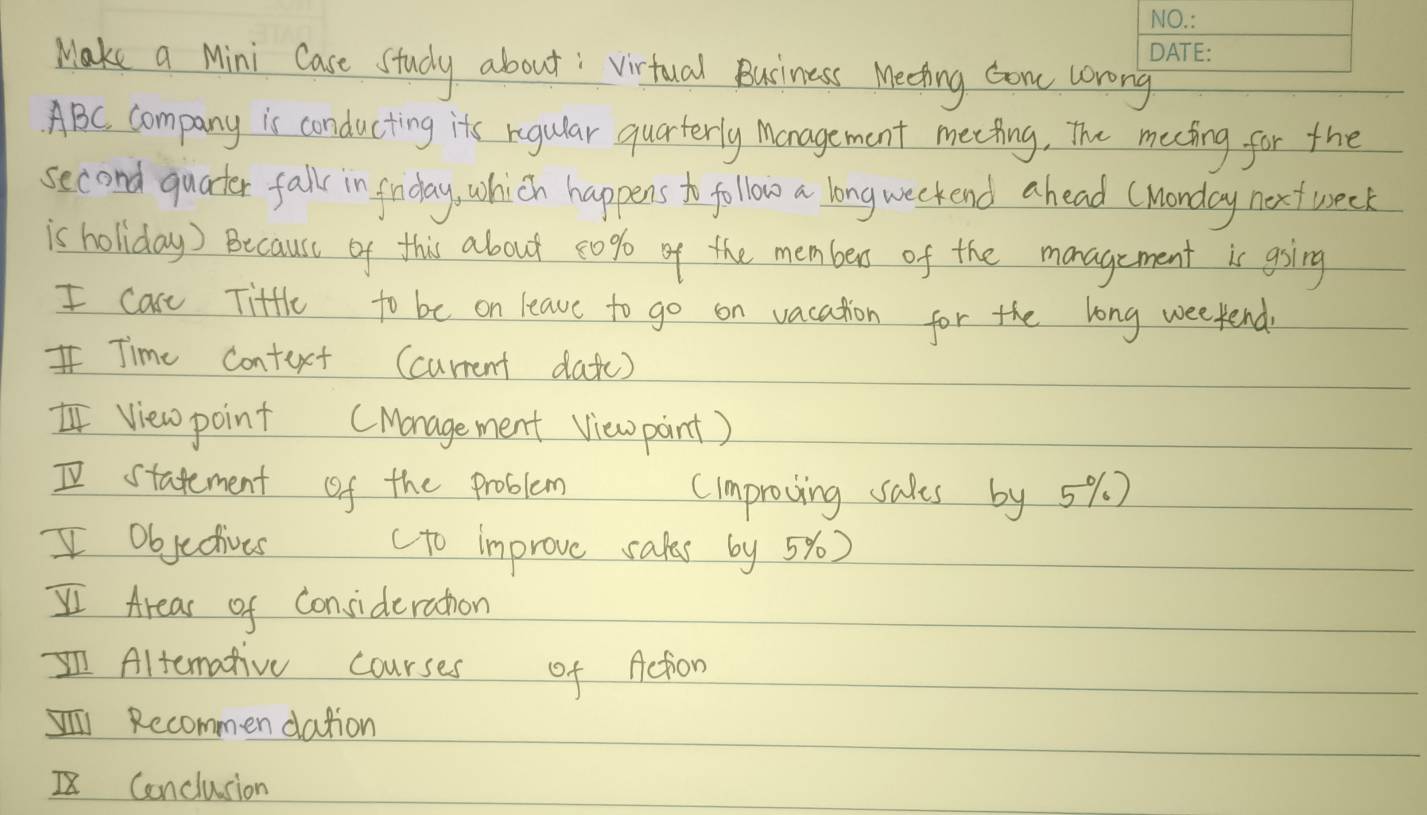 NO.:
DATE:
Make a Mini Case Study about : Virtual Business Meeting Gone Wrong
ABC Company is conducting its regular quarterly Management meeting. The meeting for the
second quarter falls in friday, which happens to follow a long weekend ahead (Monday next week
is holiday) Because of this about 80% of the members of the management is going
I Case Tittle to be on leave to go on vacation for the long weekend.
II Time Context (current date)
III View point (Management View point)
IV Statement of the Problem (Improving sales by 5%)
V Objectives (To improve sales by 5%)
VI Areas of Consideration
VII Alternative Courses of Action
VIII Recommendation
IX Conclusion